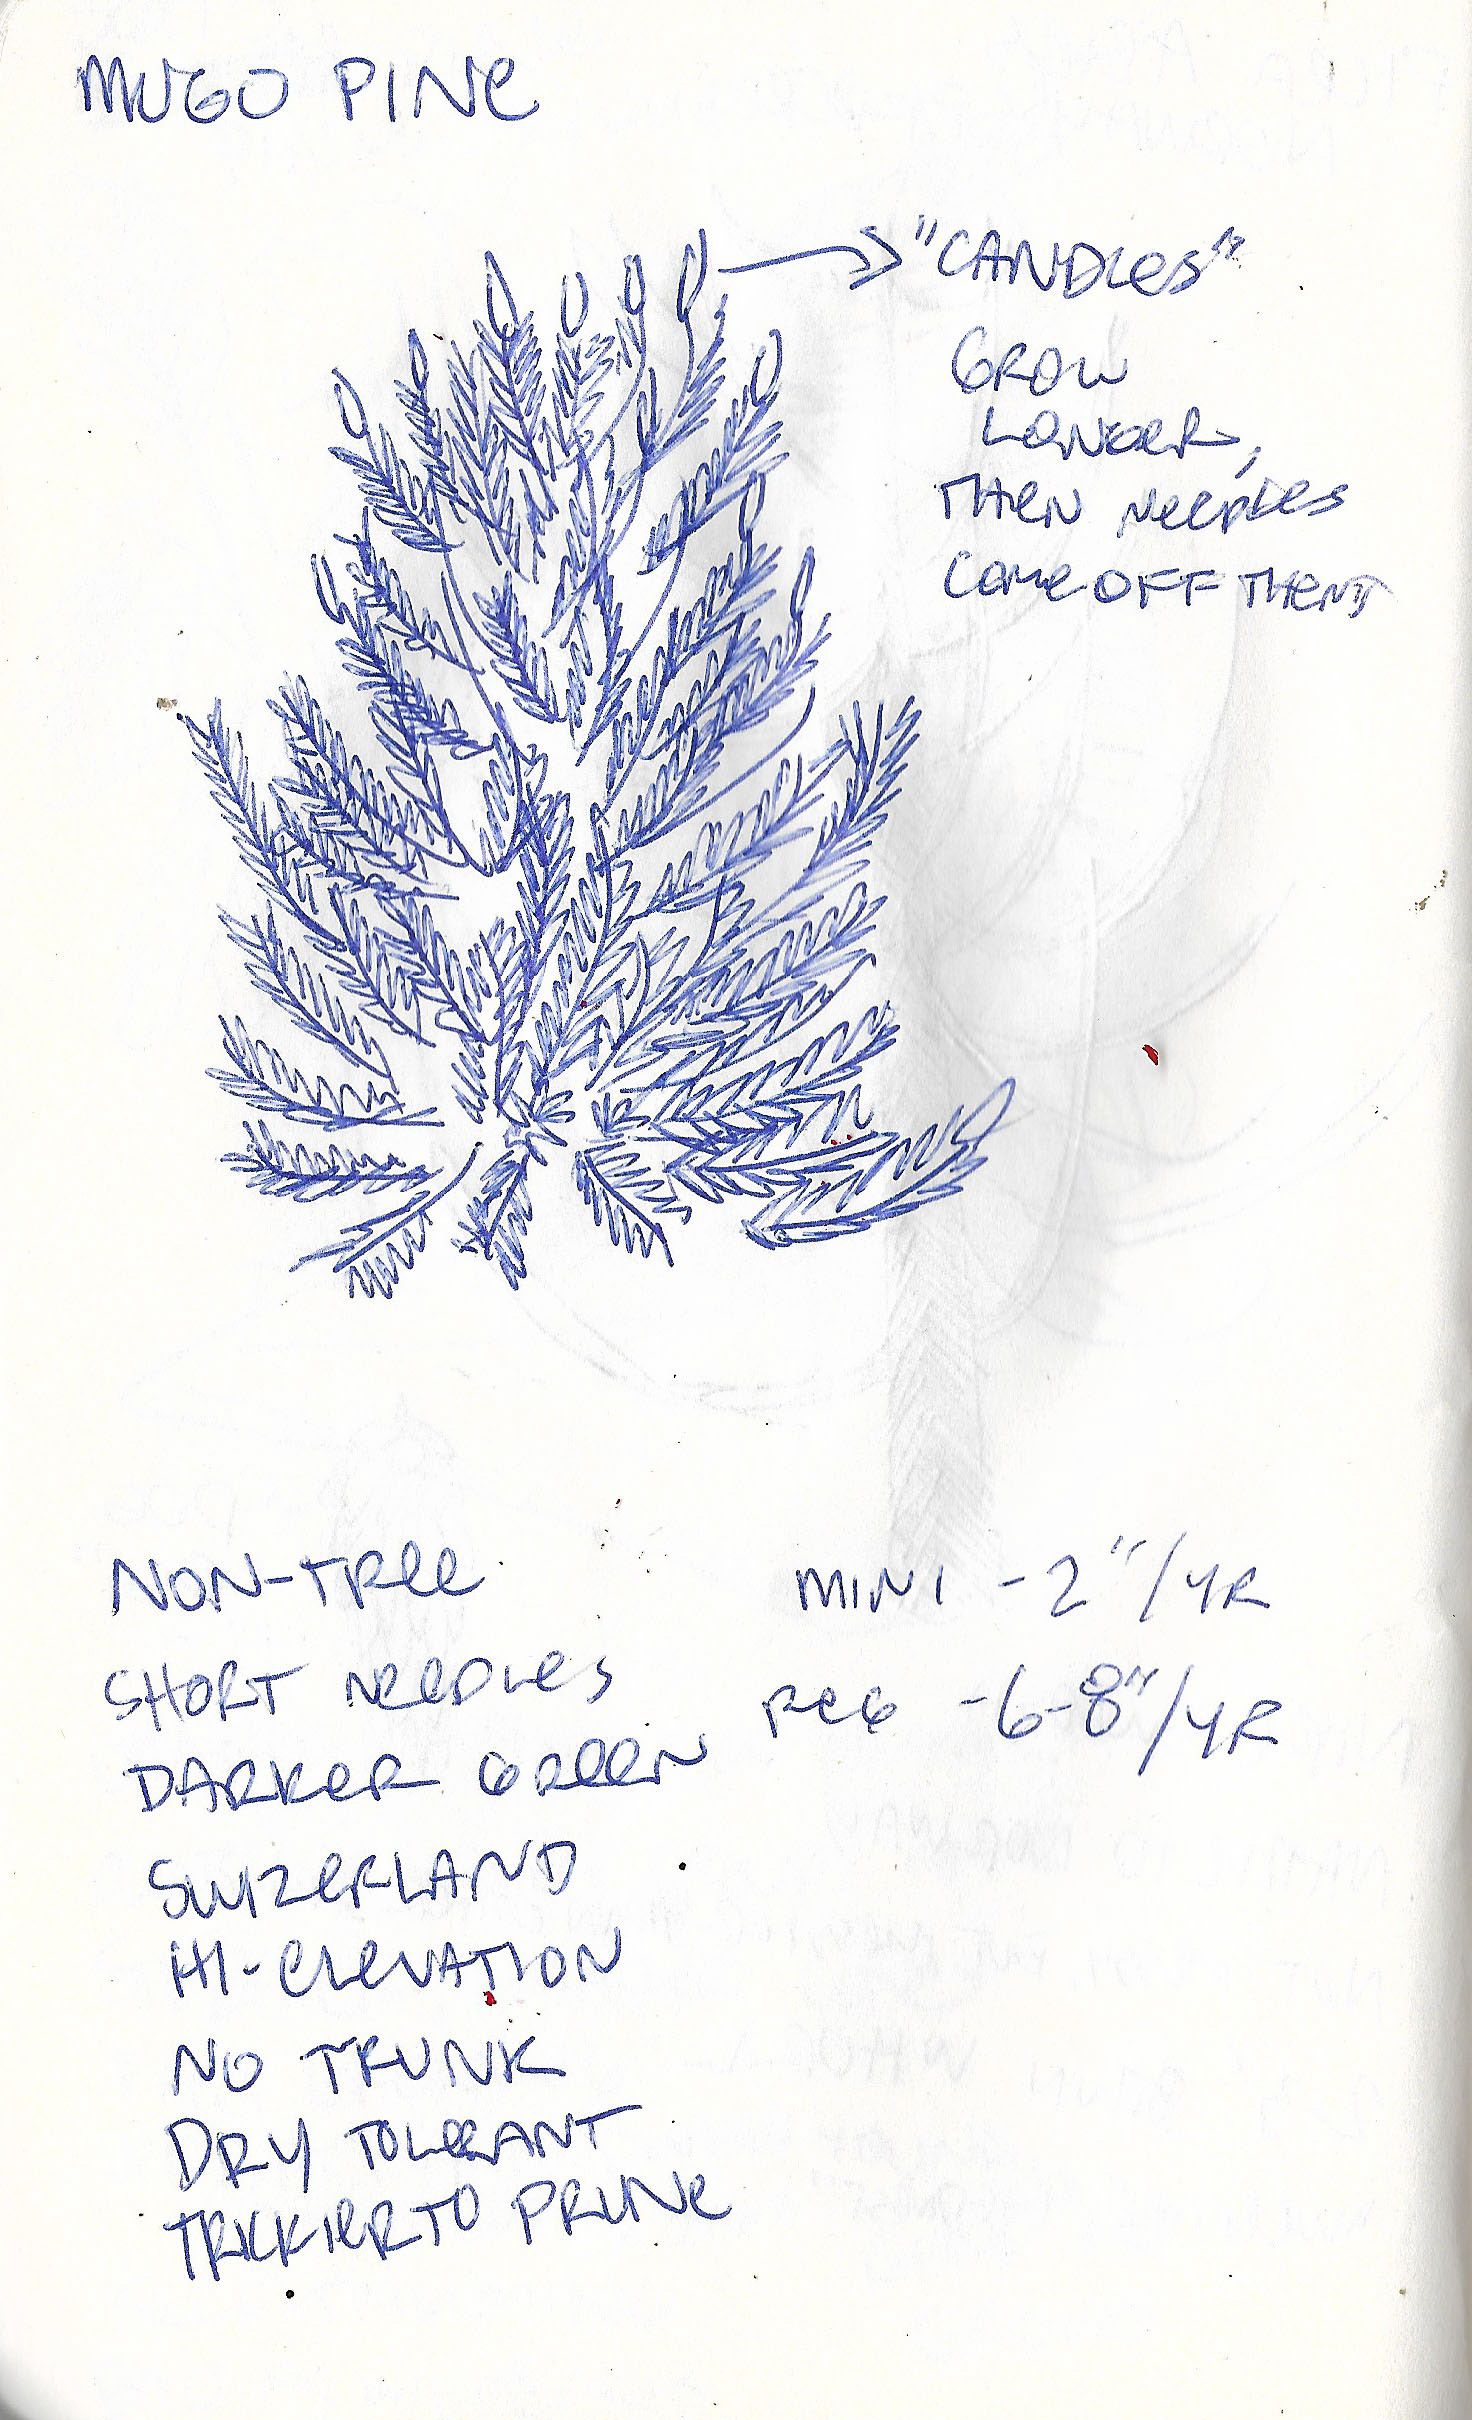 MUGO PINe
"CANDLes"
GROW
LONGER,
THeN NeeDLes
COMe OFF THeM
NON-TRee
SHORT NeeDLes
DARKeR GReeN
SWIZeRLAND
HI-eLeVATION
NO TRUNK
DRY TOLeRANT
TRICKIeR TO PRUNe
MINI - 2"/YR
ReG - 6-8"/YR